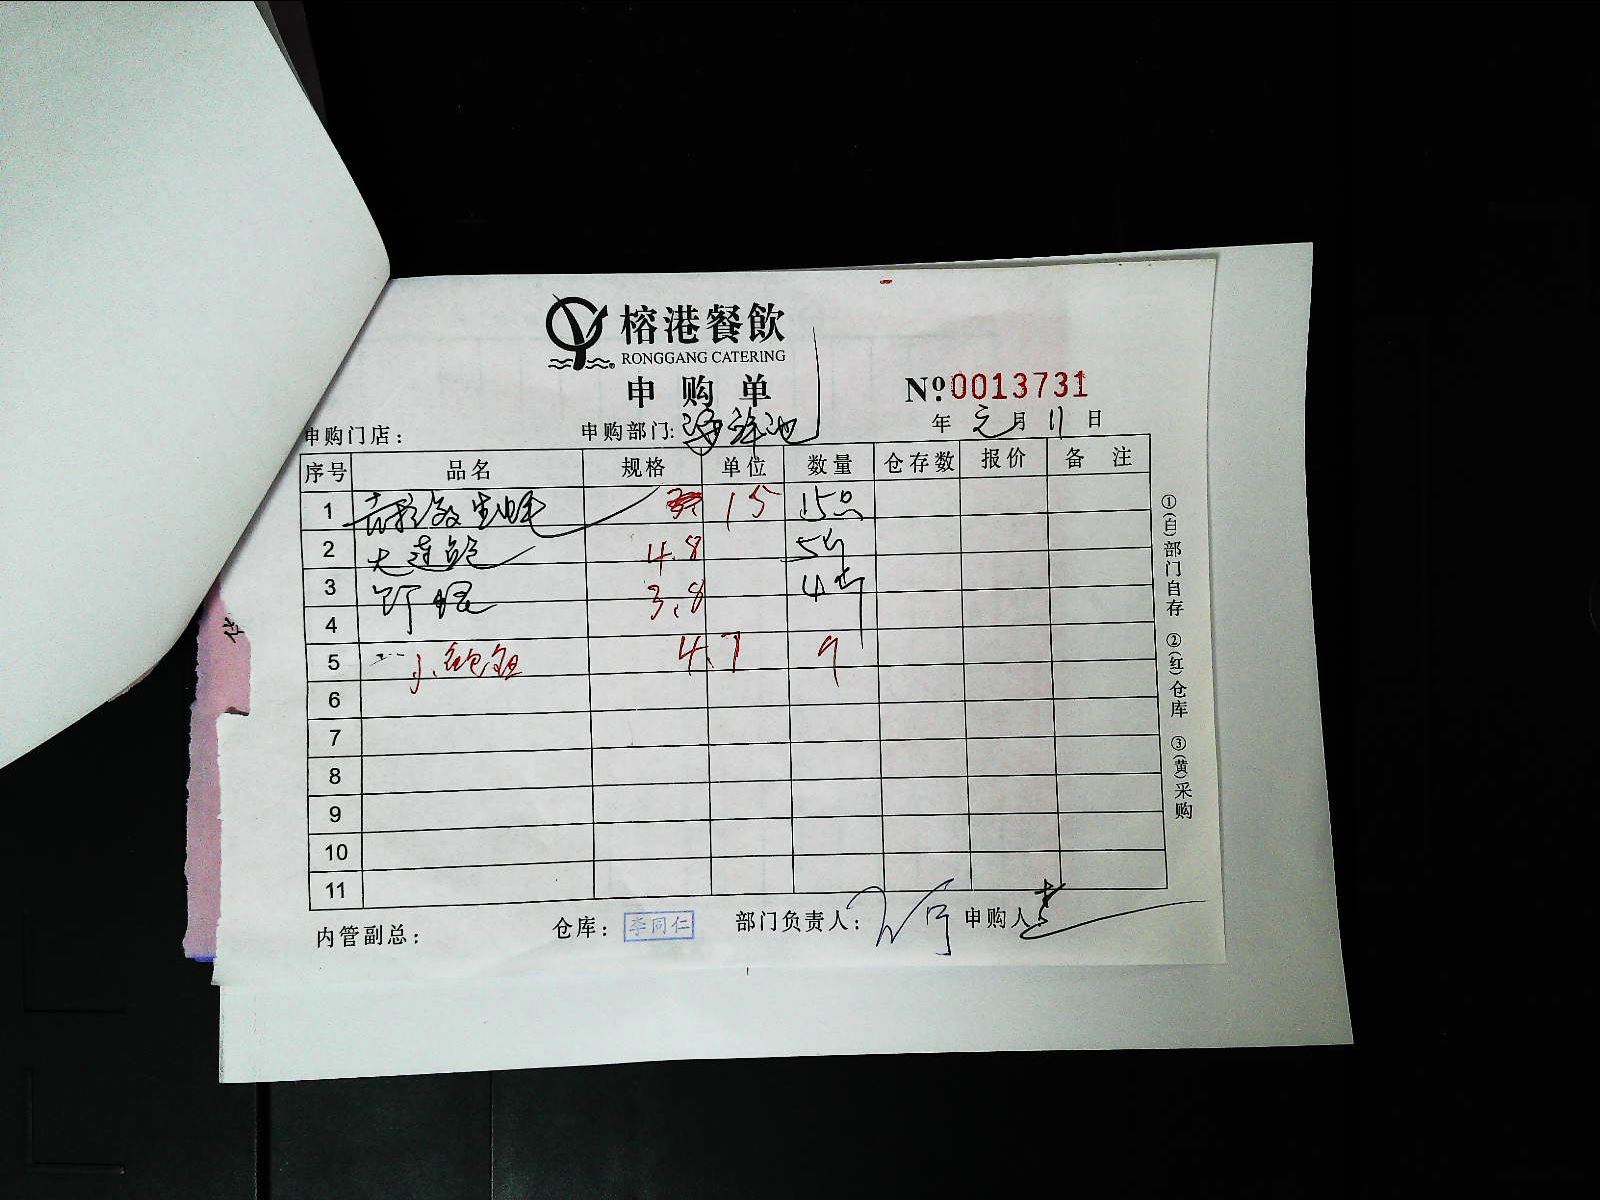 榕港餐飲
RONGGANG CATERING
申购单
№:0013731
申购门店： 申购部门: 海鲜池 年 元 月 11 日
序号 品名 规格 单位 数量 仓存数 报价 备 注
1 生蚝 15 15只
2 大连鲍 4.8 5斤
3 3.8 4斤
4
5 小鲍 4.7 9
6
7
8
9
10
11
内管副总： 仓库： 李同仁 部门负责人： 申购人
①(白)部门自存 ②(红)仓库 ③(黄)采购